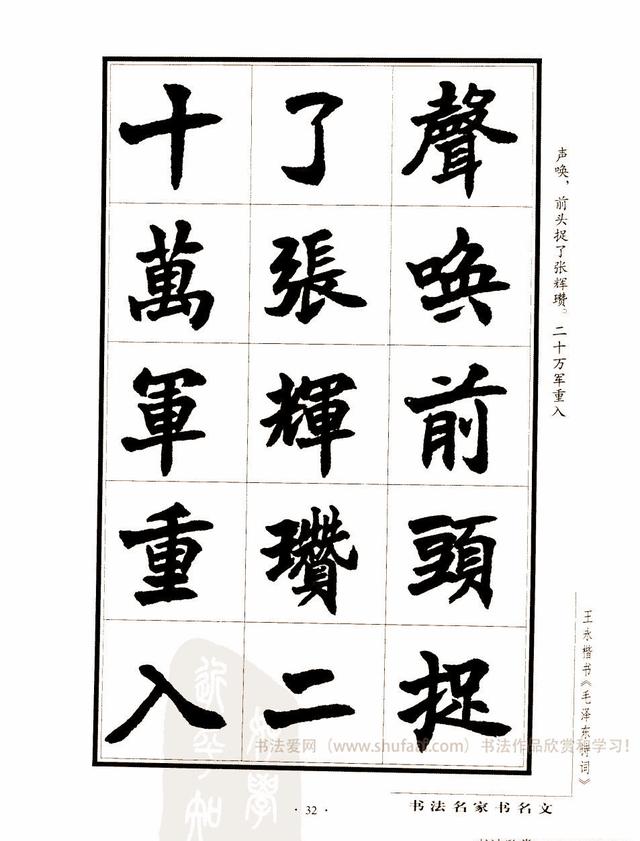 聲喚前頭捉
了張輝瓚二
十萬軍重入
声唤，前头捉了张辉瓒。二十万军重入
王永楷书《毛泽东诗词》
书法爱网（www.shufaai.com）书法作品欣赏和学习！
·32·
书法名家书名文